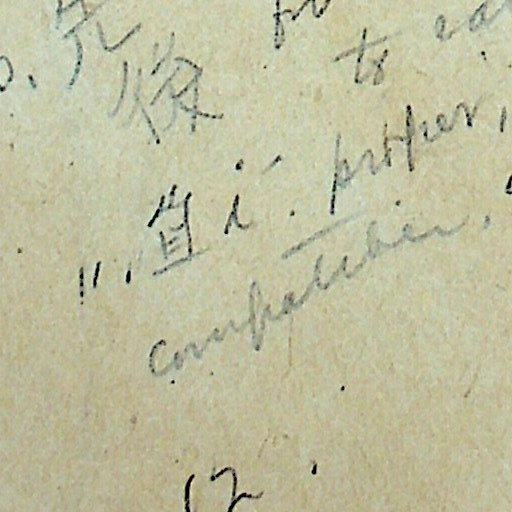 0. 先
後 to
11. 宜 í. proper,
compatible.
12.